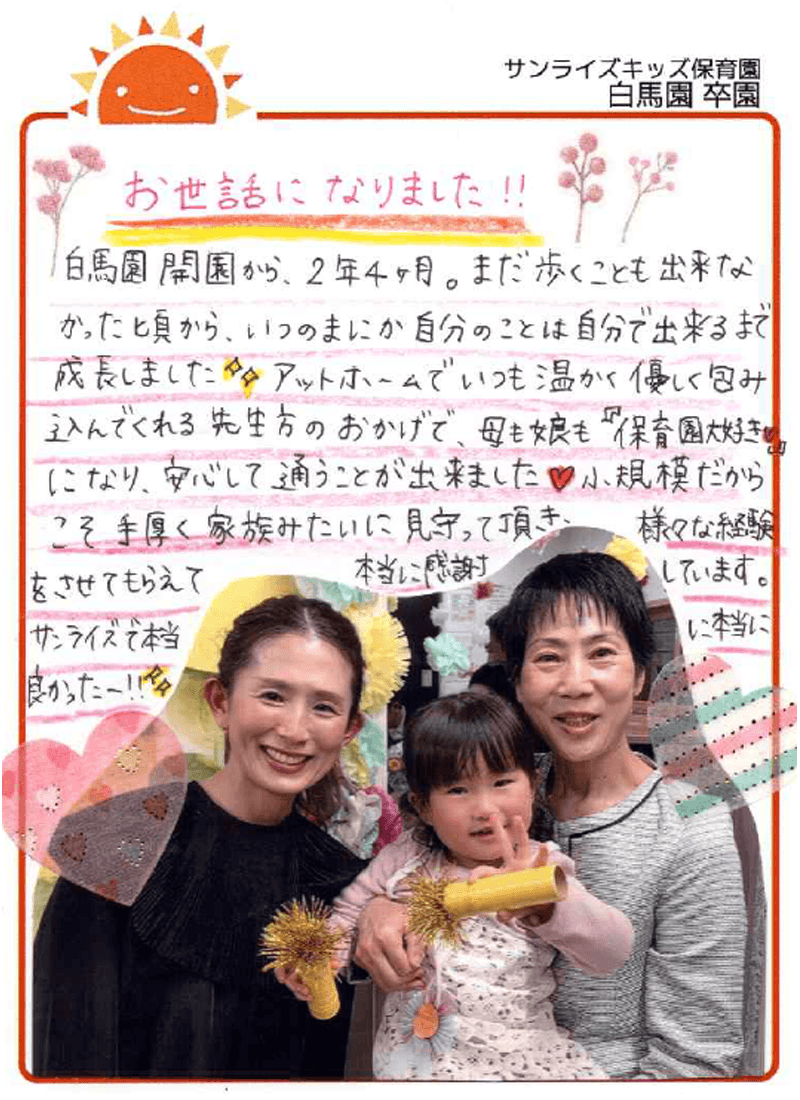 サンライズキッズ保育園
白馬園 卒園
お世話になりました!!
白馬園 開園から、2年4ヶ月。まだ歩くことも出来な
かった頃から、いつのまにか自分のことは自分で出来るまで
成長しました アットホームでいつも温かく優しく包み
込んでくれる先生方のおかげで、母も娘も『保育園大好き』
になり、安心して通うことが出来ました 小規模だから
こそ手厚く家族みたいに見守って頂き、 様々な経験
をさせてもらえて 本当に感謝 しています。
サンライズで本当 に本当に
良かったー!!